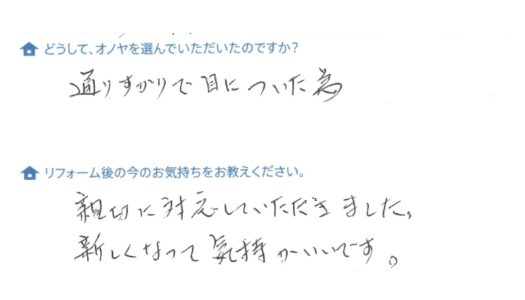 どうして、オノヤを選んでいただいたのですか？
通りすがりで目についた為
リフォーム後の今のお気持ちをお教えください。
親切に対応していただきました。
新しくなって気持がいいです。